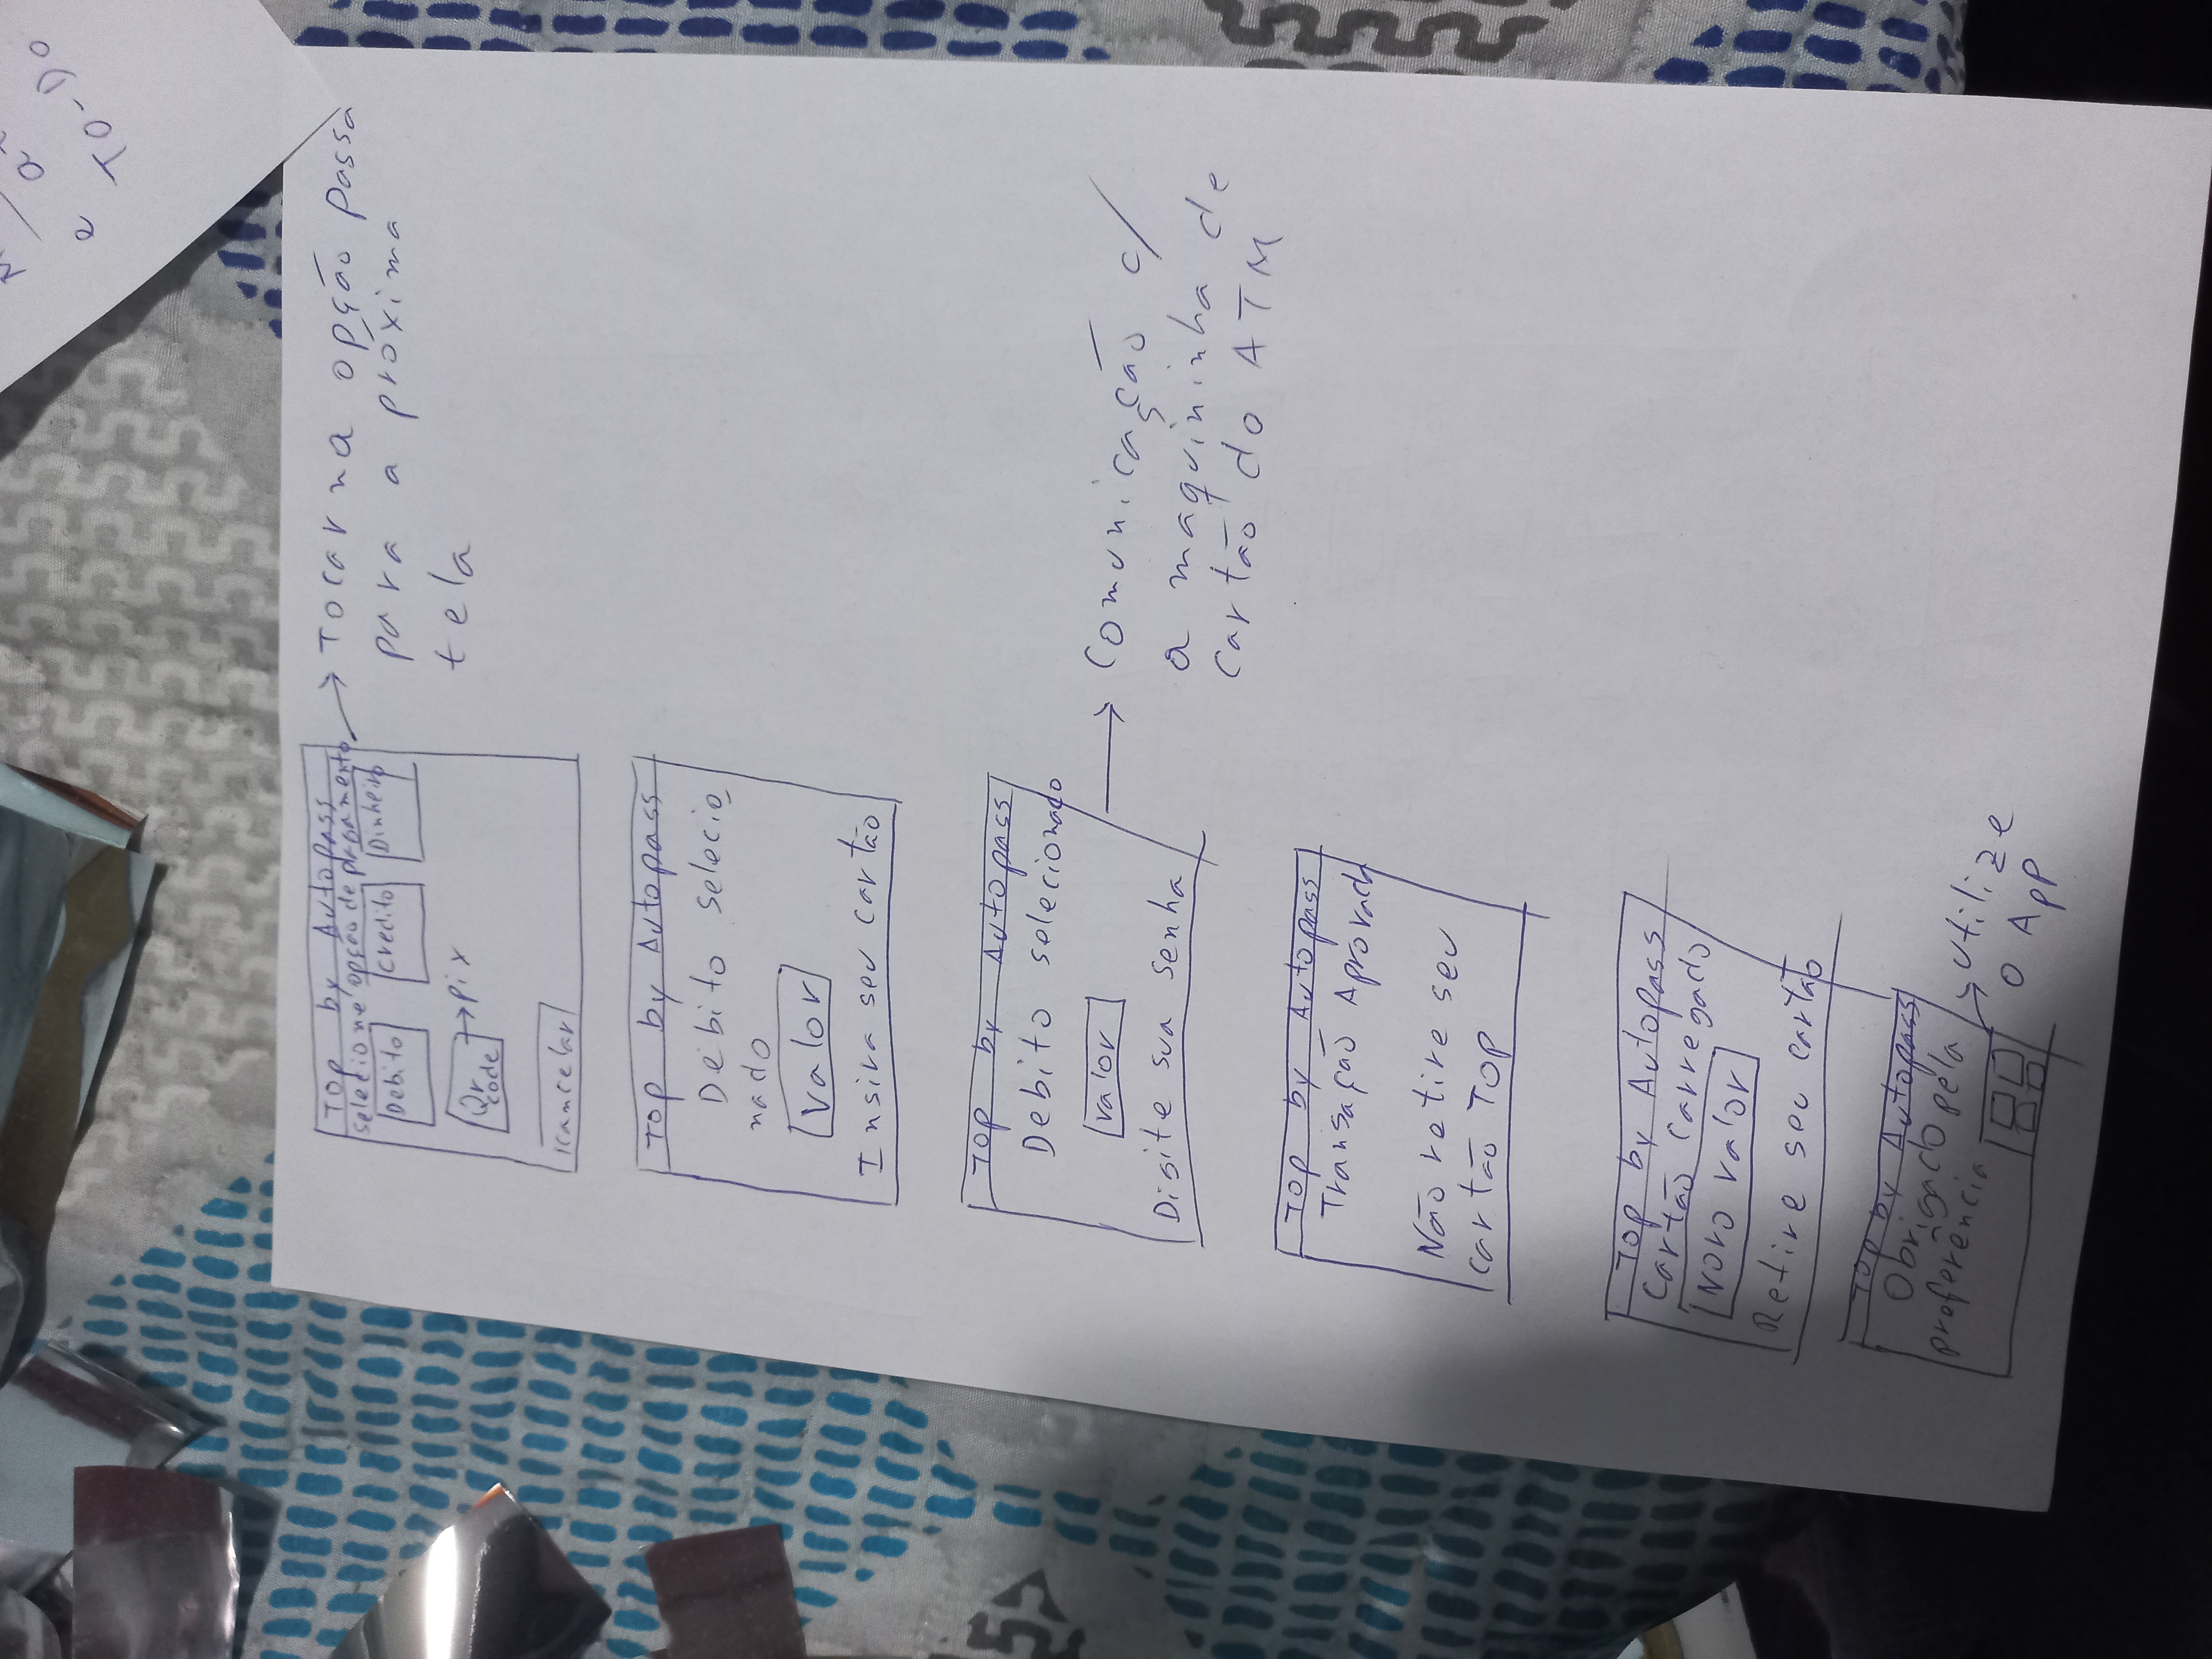 TO-DO
Top by Autopass
selecione opção de pagamento
Debito
Credito
Dinheiro
Qr
code
pix
cancelar
Tocar na opção passa
para a próxima
tela
Top by Autopass
Debito selecio
nado
valor
Insira seu cartão
Top by Autopass
Debito selecionado
valor
Digite sua senha
Comunicação c/
a maquininha de
cartão do ATM
Top by Autopass
Transação Aprovada
Não retire seu
cartão TOP
Top by Autopass
Cartão Carregado
Novo valor
Retire seu cartão
Top by Autopass
Obrigado pela
preferência
utilize
o App